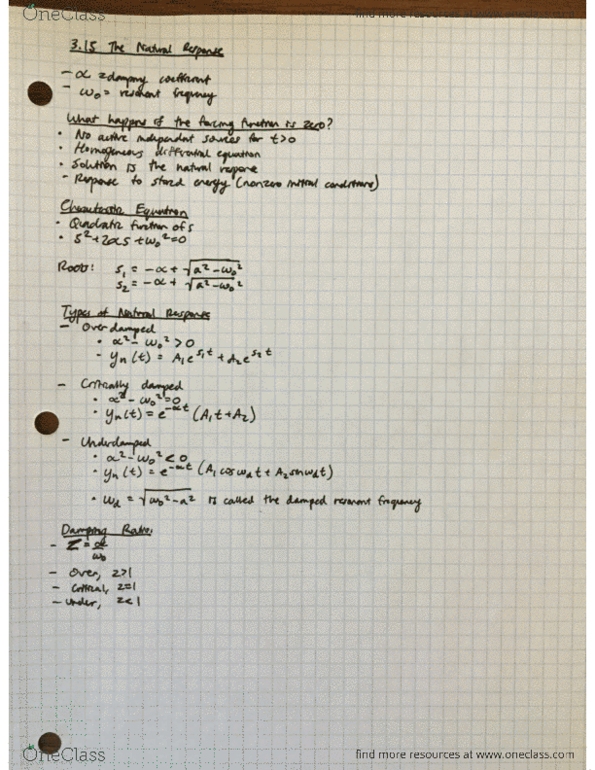 OneClass
find more resources at www.oneclass.com
3.15 The Natural Response
- α = damping coefficient
- ω₀ = resonant frequency
What happens if the forcing function is zero?
• No active independent sources for t>0
• Homogeneous differential equation
• Solution is the natural response
- Response to stored energy (nonzero initial conditions)
Characteristic Equation
• Quadratic function of s
• s² + 2αs + ω₀² = 0
Roots: s₁ = -α + √(α² - ω₀²)
s₂ = -α + √(α² - ω₀²)
Types of Natural Response
- Overdamped
• α² - ω₀² > 0
- yₙ(t) = A₁e^(s₁t) + A₂e^(s₂t)
- Critically damped
• α² - ω₀² = 0
• yₙ(t) = e^(-αt) (A₁t + A₂)
- Underdamped
• α² - ω₀² < 0
• yₙ(t) = e^(-αt) (A₁ cos ω_d t + A₂ sin ω_d t)
• ω_d = √(ω₀² - α²) is called the damped resonant frequency
Damping Ratio:
- Z = α/ω₀
- Over, z>1
- Critical, z=1
- Under, z<1
OneClass
find more resources at www.oneclass.com